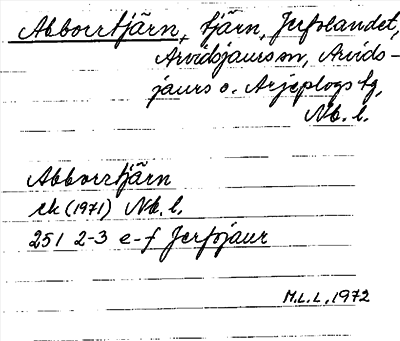 Abborrtjärn, tjärn, Jerfolandet,
Arvidsjaurs sn, Arvids-
jaurs o. Arjeplogs tg,
Nb. l.
Abborrtjärn
ek (1971) Nb. l.
251 2-3 e-f Jerfojaur
M.L.L, 1972